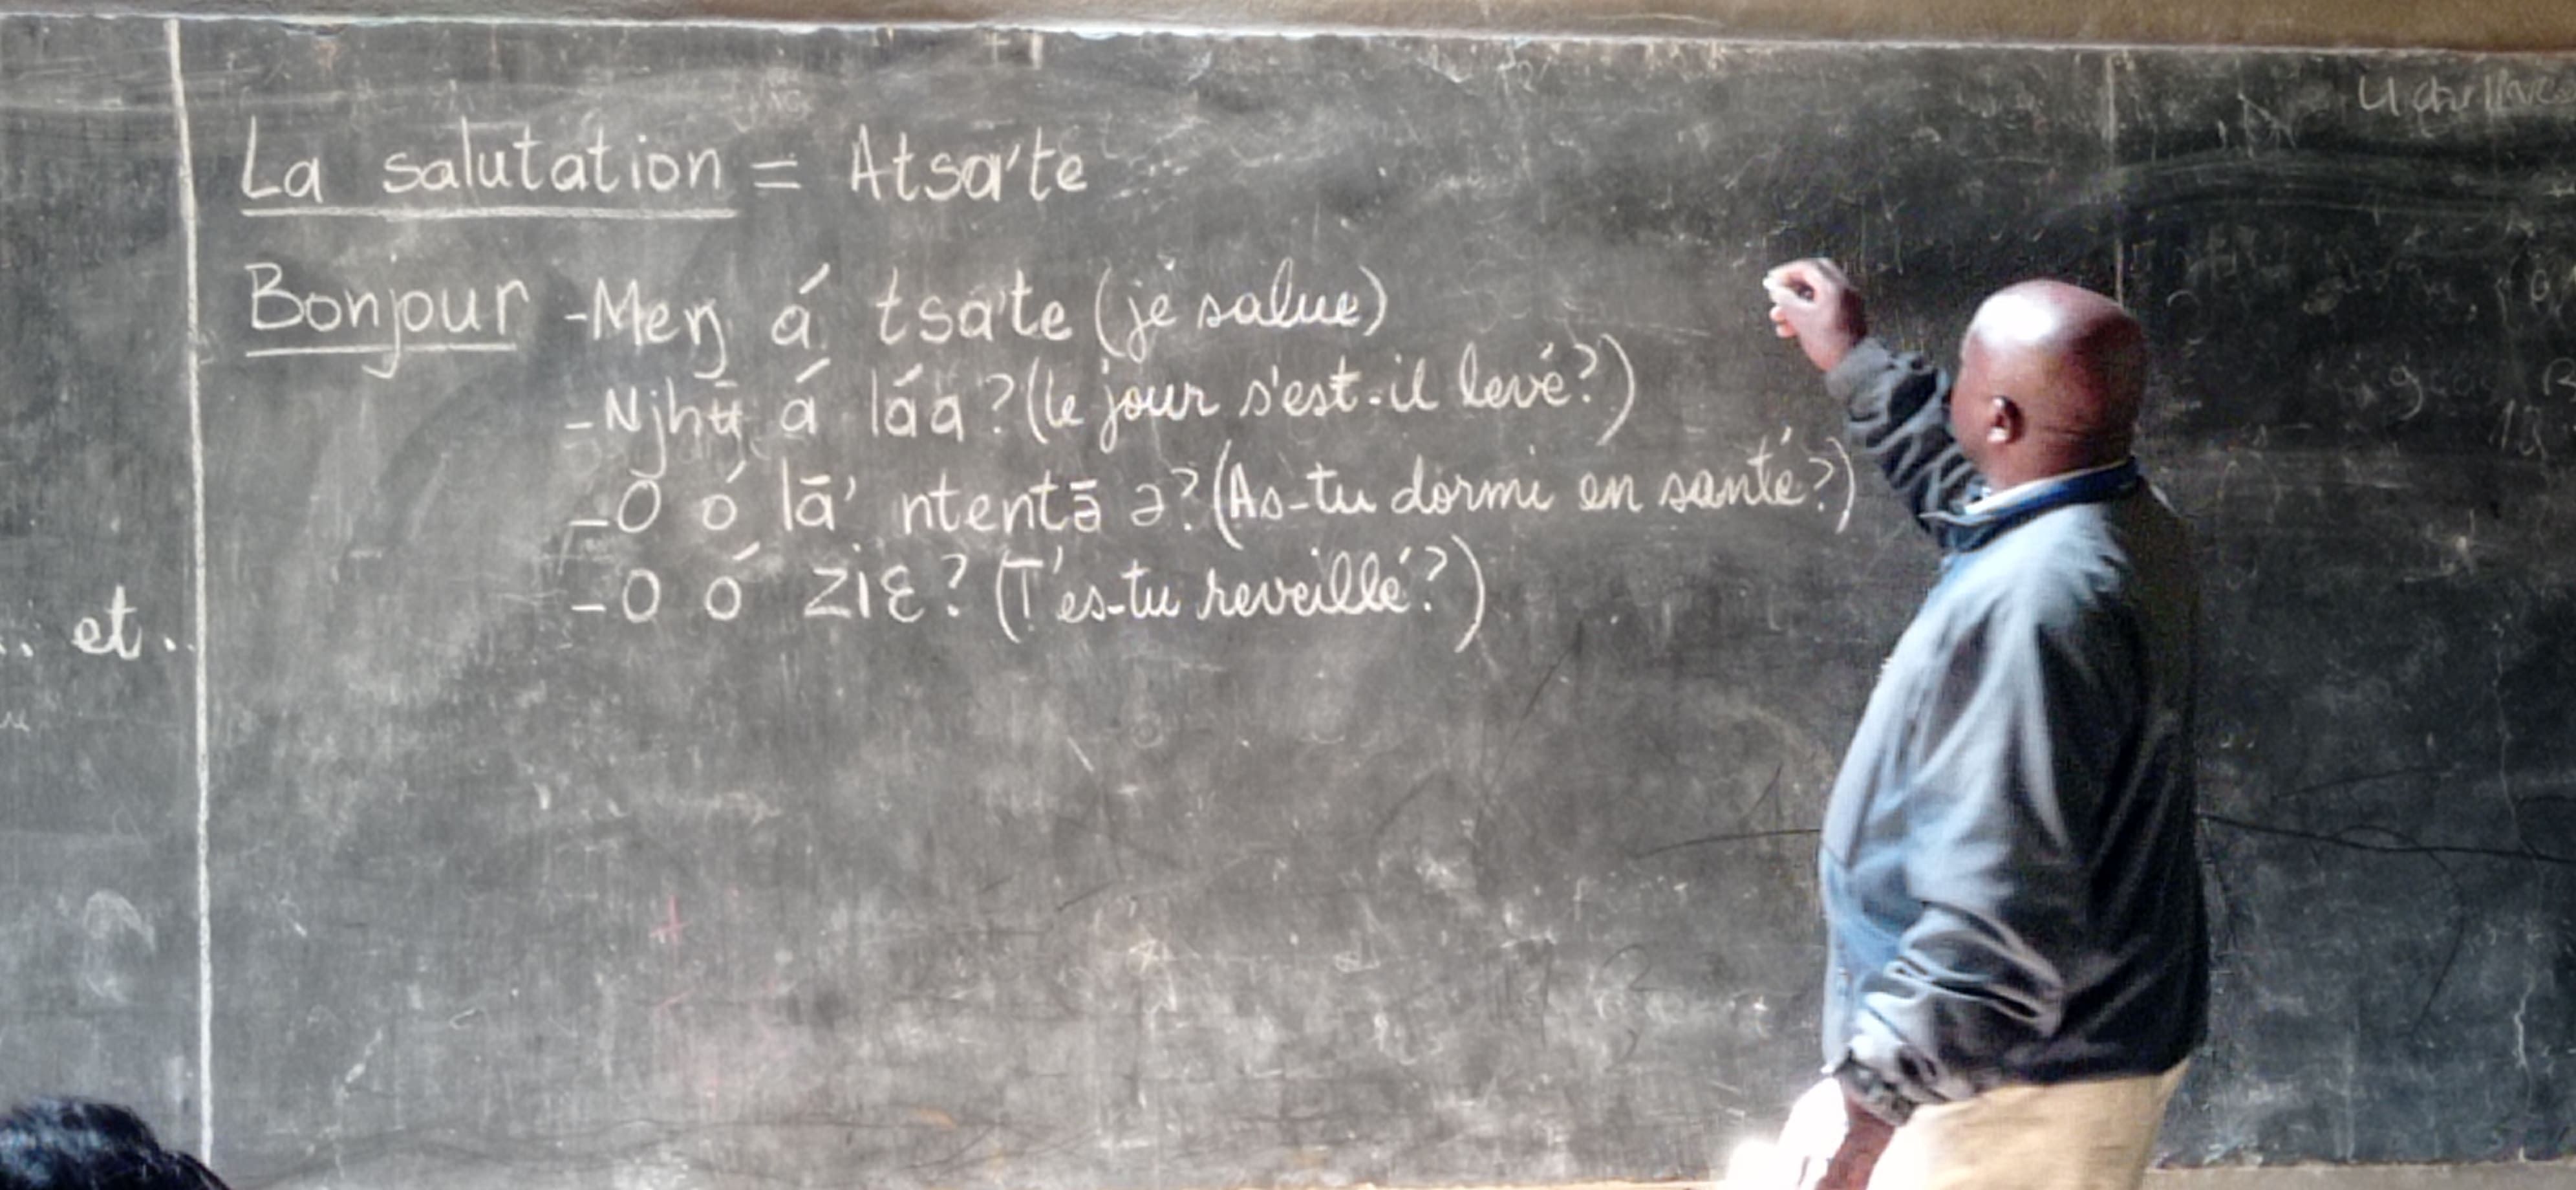 La salutation = Atsa'te
Bonjour - Meŋ á tsa'te (je salue)
- Njhʉ̄ á láa ? (le jour s'est-il levé ?)
- O ó lā' ntentā ə ? (As-tu dormi en santé ?)
- O ó ziɛ ? (T'es-tu reveillé ?)
.. et ..